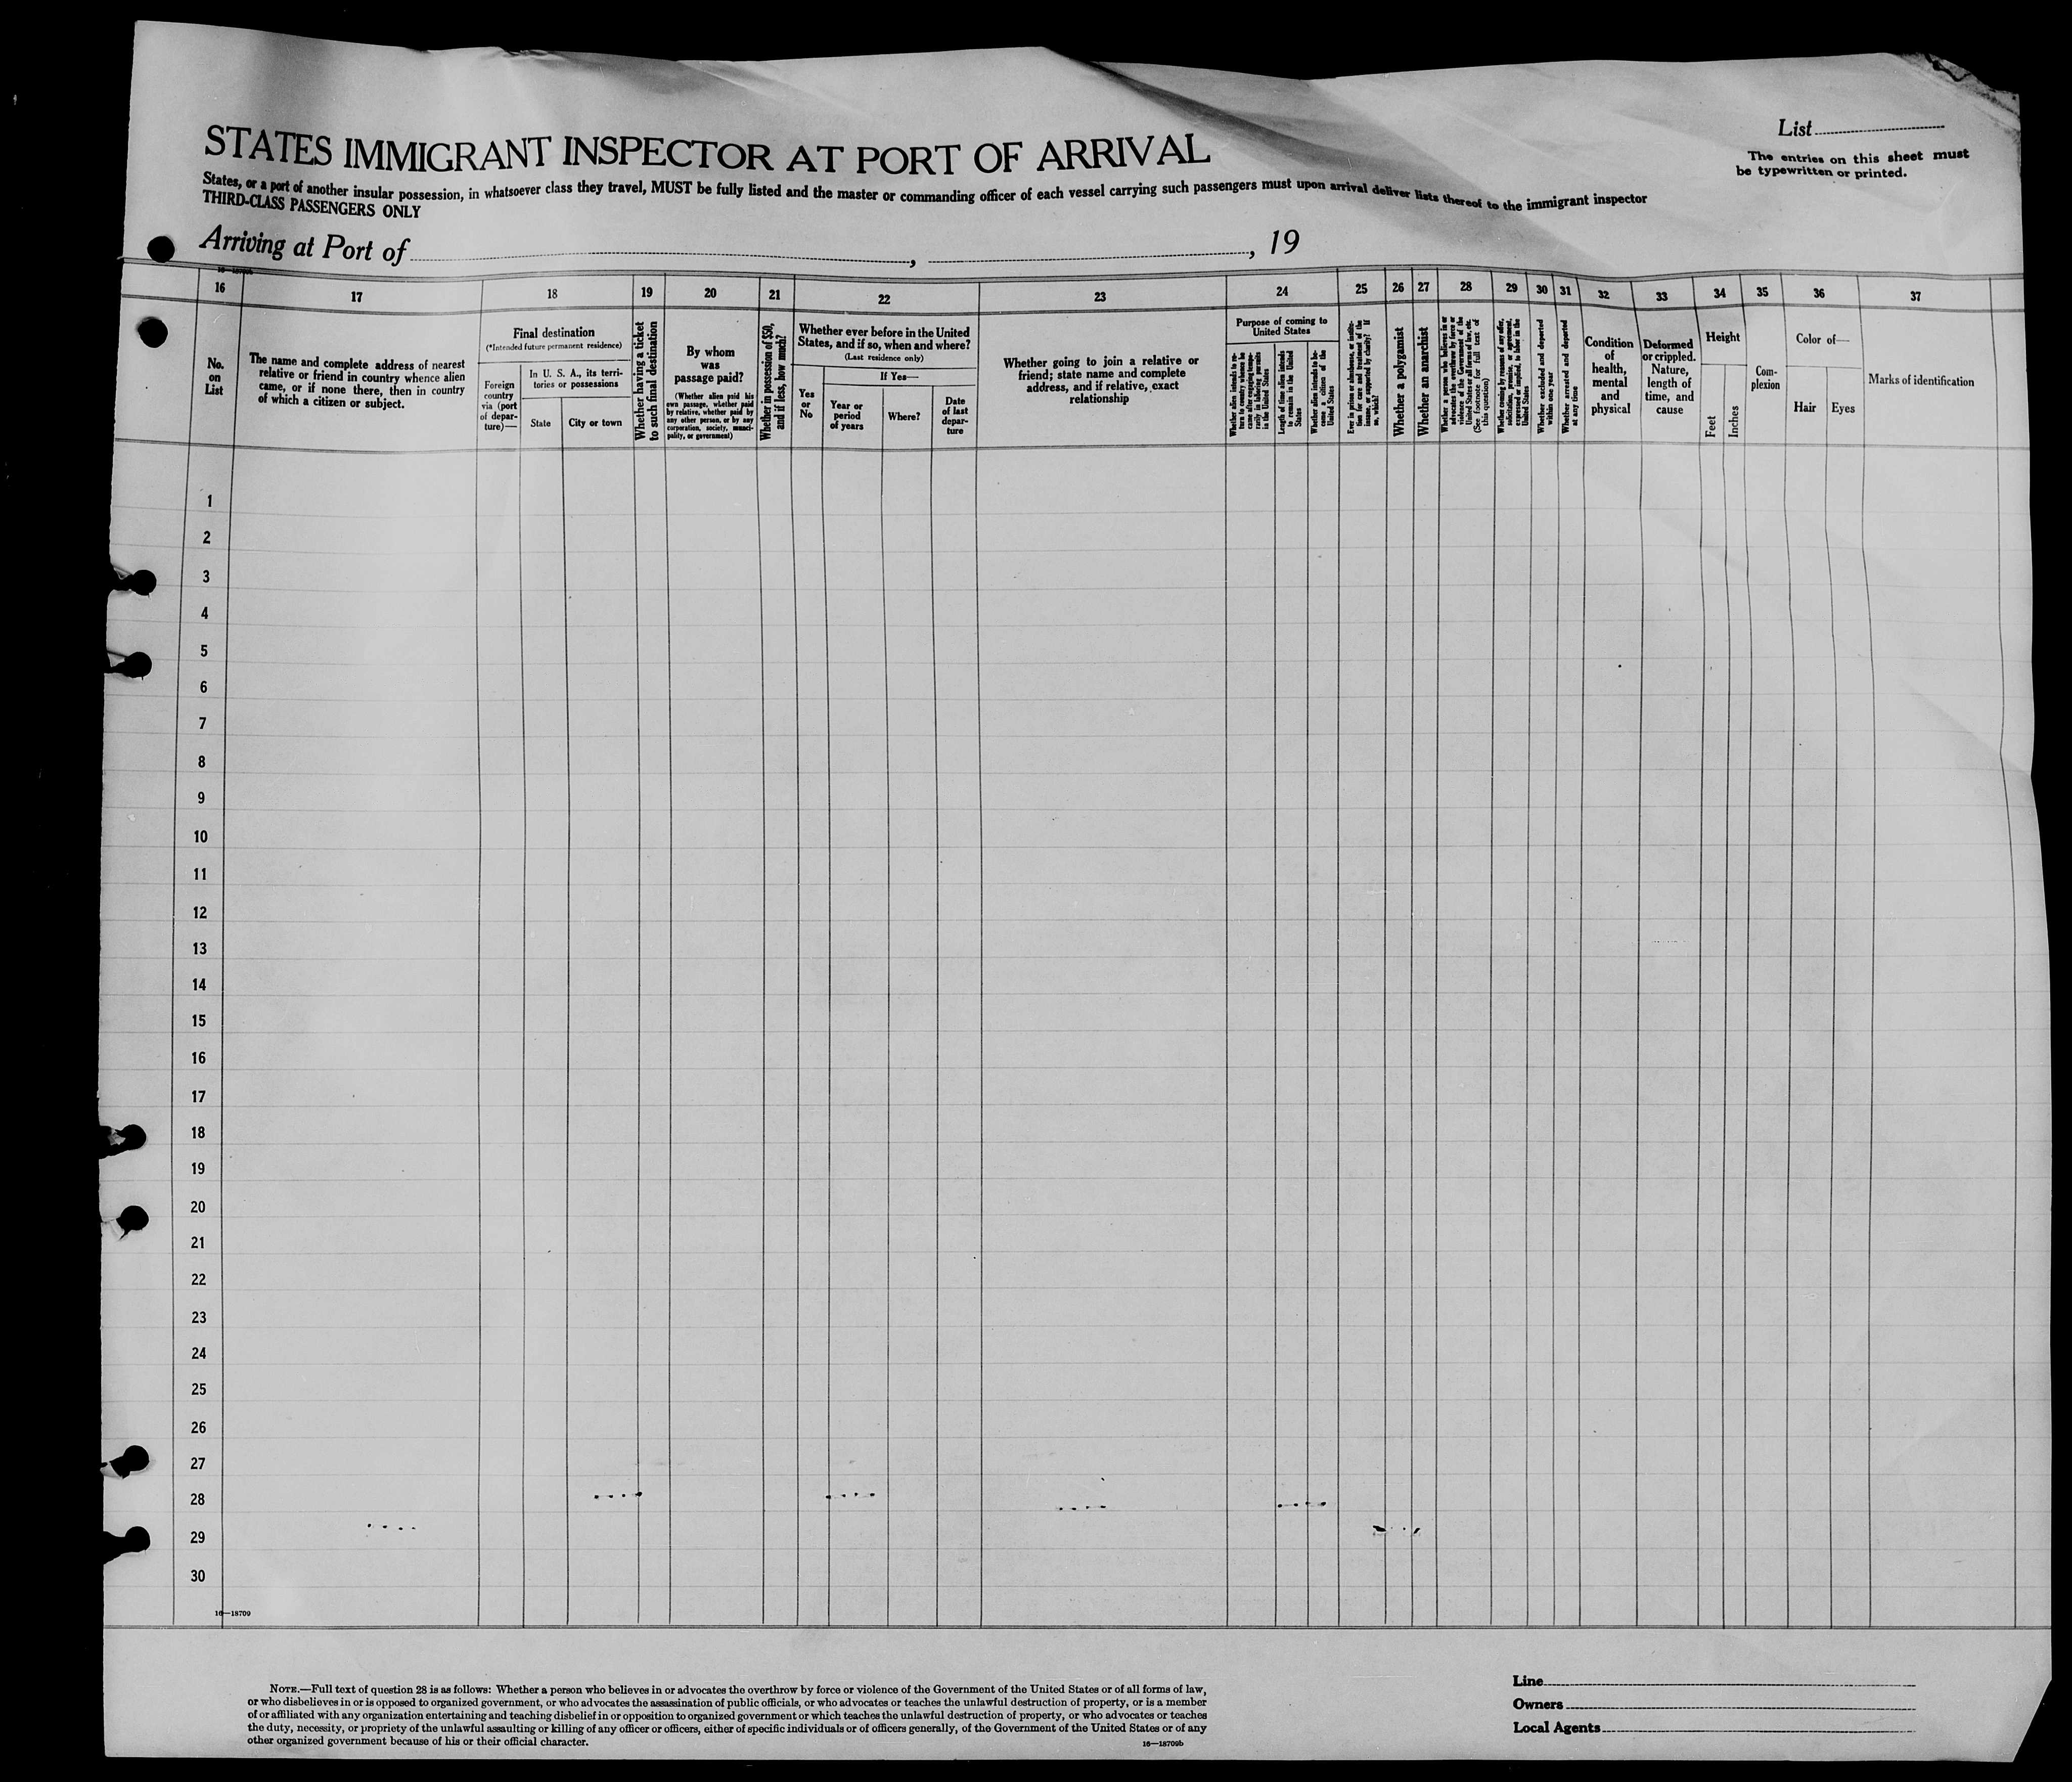 STATES IMMIGRANT INSPECTOR AT PORT OF ARRIVAL
List
The entries on this sheet must
be typewritten or printed.
States, or a port of another insular possession, in whatsoever class they travel, MUST be fully listed and the master or commanding officer of each vessel carrying such passengers must upon arrival deliver lists thereof to the immigrant inspector
THIRD-CLASS PASSENGERS ONLY
Arriving at Port of , , 19
16 17 18 19 20 21 22 23 24 25 26 27 28 29 30 31 32 33 34 35 36 37
No.
on
List
The name and complete address of nearest
relative or friend in country whence alien
came, or if none there, then in country
of which a citizen or subject.
Final destination
(*Intended future permanent residence)
Foreign
country
via (port
of depar-
ture)—
In U. S. A., its terri-
tories or possessions
State
City or town
Whether having a ticket
to such final destination
By whom
was
passage paid?
(Whether alien paid his
own passage, whether paid
by relative, whether paid by
any other person, or by any
corporation, society, munici-
pality, or government)
Whether in possession of $50,
and if less, how much?
Whether ever before in the United
States, and if so, when and where?
(Last residence only)
Yes
or
No
If Yes—
Year or
period
of years
Where?
Date
of last
depar-
ture
Whether going to join a relative or
friend; state name and complete
address, and if relative, exact
relationship
Purpose of coming to
United States
Whether alien intends to re-
turn to country whence he
came after engaging tempo-
rarily in laboring pursuits
in the United States
Length of time alien intends
to remain in the United
States
Whether alien intends to be-
come a citizen of the
United States
Ever in prison or almshouse, or institu-
tion for care and treatment of the
insane, or supported by charity? If
so, which?
Whether a polygamist
Whether an anarchist
Whether a person who believes in or
advocates the overthrow by force or
violence of the Government of the
United States or all forms of law, etc.
(See footnote for full text of
this question)
Whether coming by reason of any offer,
solicitation, promise, or agreement,
expressed or implied, to labor in the
United States
Whether excluded and deported
within one year
Whether arrested and deported
at any time
Condition
of
health,
mental
and
physical
Deformed
or crippled.
Nature,
length of
time, and
cause
Height
Feet
Inches
Com-
plexion
Color of—
Hair
Eyes
Marks of identification
1
2
3
4
5
6
7
8
9
10
11
12
13
14
15
16
17
18
19
20
21
22
23
24
25
26
27
28
29
30
16—18709
NOTE.—Full text of question 28 is as follows: Whether a person who believes in or advocates the overthrow by force or violence of the Government of the United States or of all forms of law,
or who disbelieves in or is opposed to organized government, or who advocates the assassination of public officials, or who advocates or teaches the unlawful destruction of property, or is a member
of or affiliated with any organization entertaining and teaching disbelief in or opposition to organized government or which teaches the unlawful destruction of property, or who advocates or teaches
the duty, necessity, or propriety of the unlawful assaulting or killing of any officer or officers, either of specific individuals or of officers generally, of the Government of the United States or of any
other organized government because of his or their official character.
16—18709b
Line
Owners
Local Agents